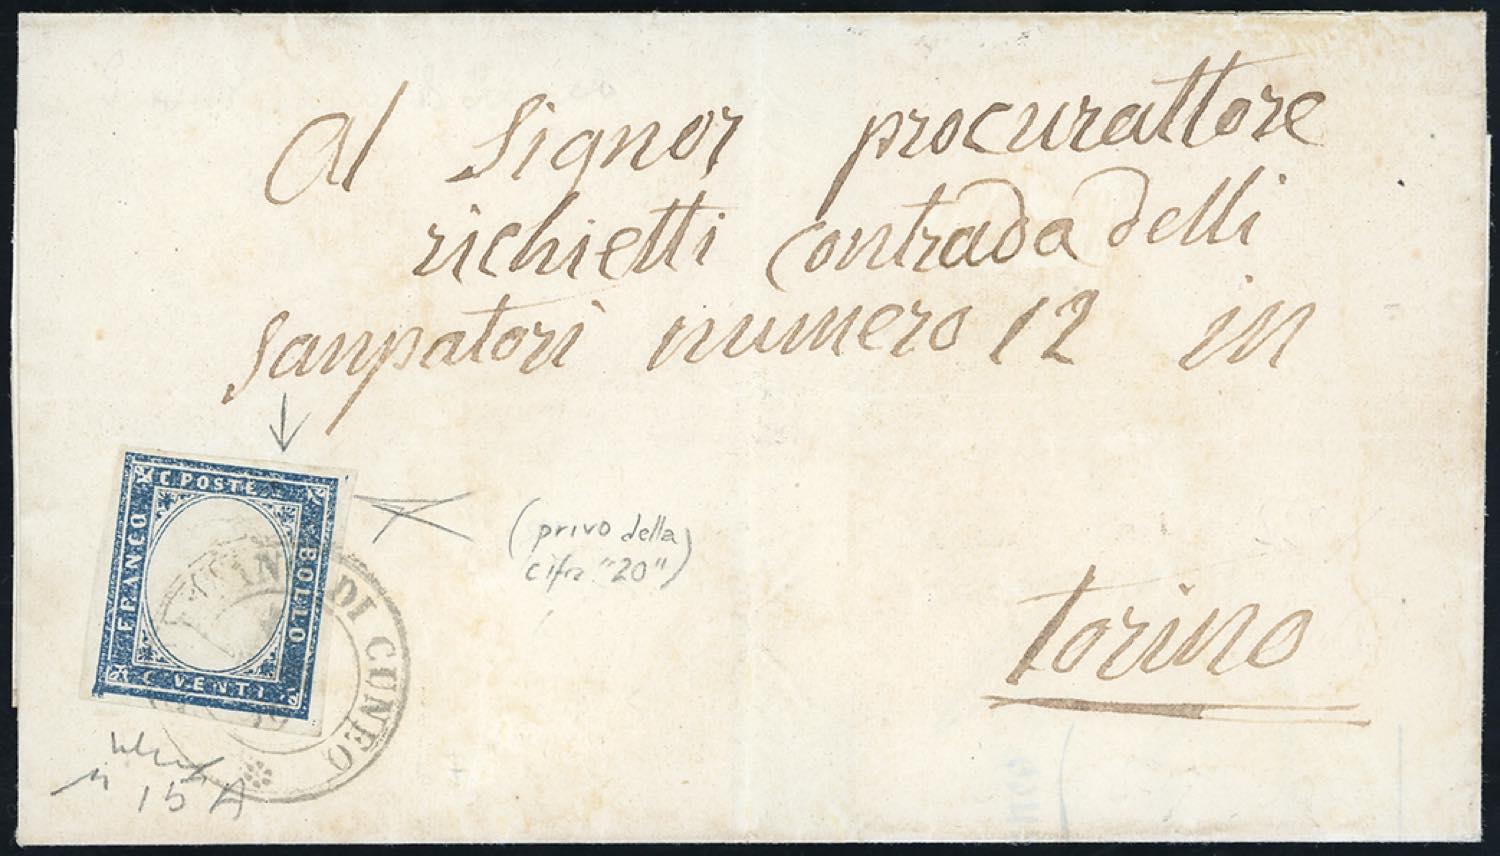 Al Signor procurattore
richietti contrada delli
sanpatori numero 12 in
torino
C POSTE
FRANCO
BOLLO
C VENTI
DI CUNEO
(privo della
cifra "20")
n 15 A